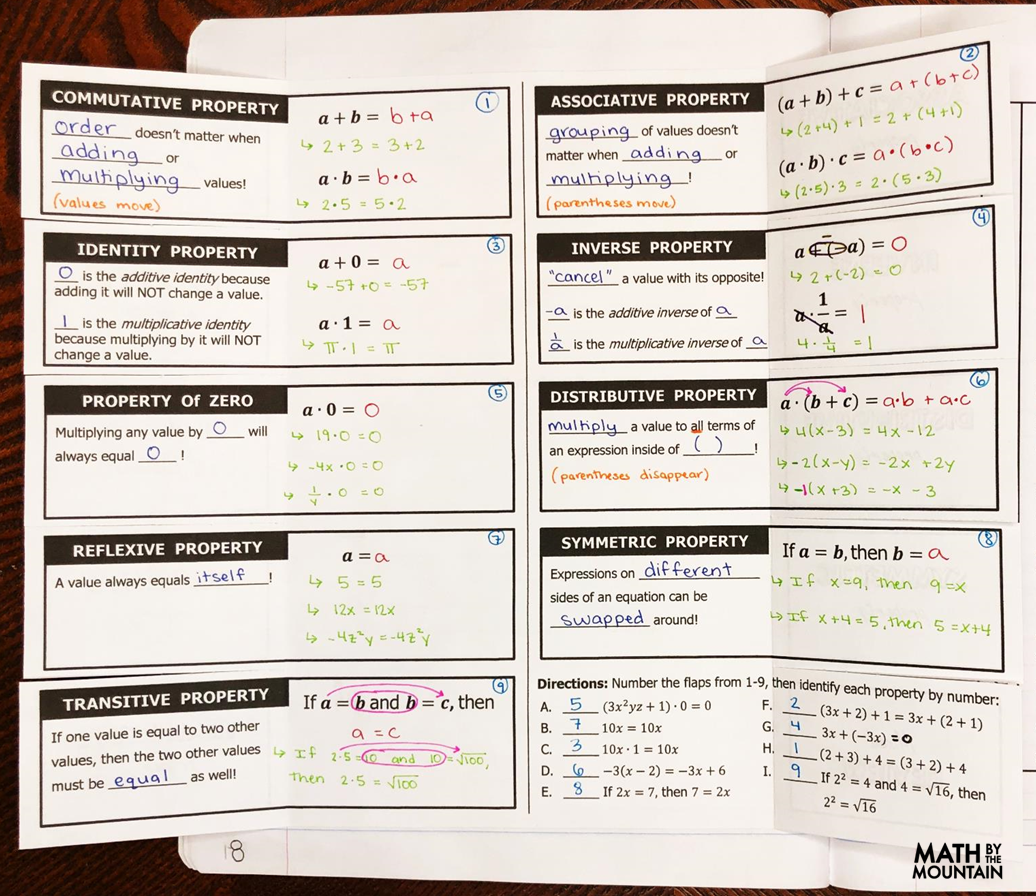 COMMUTATIVE PROPERTY
order doesn't matter when
adding or
multiplying values!
(values move)
1
a + b = b+a
↳ 2+3 = 3+2
a · b = b•a
↳ 2·5 = 5·2
ASSOCIATIVE PROPERTY
grouping of values doesn't
matter when adding or
multiplying !
(parentheses move)
2
(a + b) + c = a+(b+c)
↳ (2+4)+1 = 2+(4+1)
(a · b) · c = a•(b•c)
↳ (2·5)·3 = 2·(5·3)
IDENTITY PROPERTY
0 is the additive identity because
adding it will NOT change a value.
1 is the multiplicative identity
because multiplying by it will NOT
change a value.
3
a + 0 = a
↳ -57+0 = -57
a · 1 = a
↳ π·1 = π
INVERSE PROPERTY
"cancel" a value with its opposite!
-a is the additive inverse of a
1/a is the multiplicative inverse of a
4
a + (-a) = 0
↳ 2+(-2) = 0
a · 1/a = 1
4 · 1/4 = 1
PROPERTY Of ZERO
Multiplying any value by 0 will
always equal 0 !
5
a · 0 = 0
↳ 19·0 = 0
↳ -4x·0 = 0
↳ 1/y · 0 = 0
DISTRIBUTIVE PROPERTY
multiply a value to all terms of
an expression inside of ( ) !
(parentheses disappear)
6
a · (b + c) = a·b + a·c
↳ 4(x-3) = 4x-12
↳ -2(x-y) = -2x +2y
↳ -1(x+3) = -x - 3
REFLEXIVE PROPERTY
A value always equals itself !
7
a = a
↳ 5 = 5
↳ 12x = 12x
↳ -4z²y = -4z²y
SYMMETRIC PROPERTY
Expressions on different
sides of an equation can be
swapped around!
8
If a = b, then b = a
↳ If x=9, then 9=x
↳ If x+4=5, then 5=x+4
TRANSITIVE PROPERTY
If one value is equal to two other
values, then the two other values
must be equal as well!
9
If a = b and b = c, then
a = c
↳ If 2·5 = 10 and 10 = √100,
then 2·5 = √100
Directions: Number the flaps from 1-9, then identify each property by number:
A. 5 (3x²yz + 1) · 0 = 0
B. 7 10x = 10x
C. 3 10x · 1 = 10x
D. 6 −3(x − 2) = −3x + 6
E. 8 If 2x = 7, then 7 = 2x
F. 2 (3x + 2) + 1 = 3x + (2 + 1)
G. 4 3x + (−3x) = 0
H. 1 (2 + 3) + 4 = (3 + 2) + 4
I. 9 If 2² = 4 and 4 = √16, then
2² = √16
18
MATH BY THE
MOUNTAIN